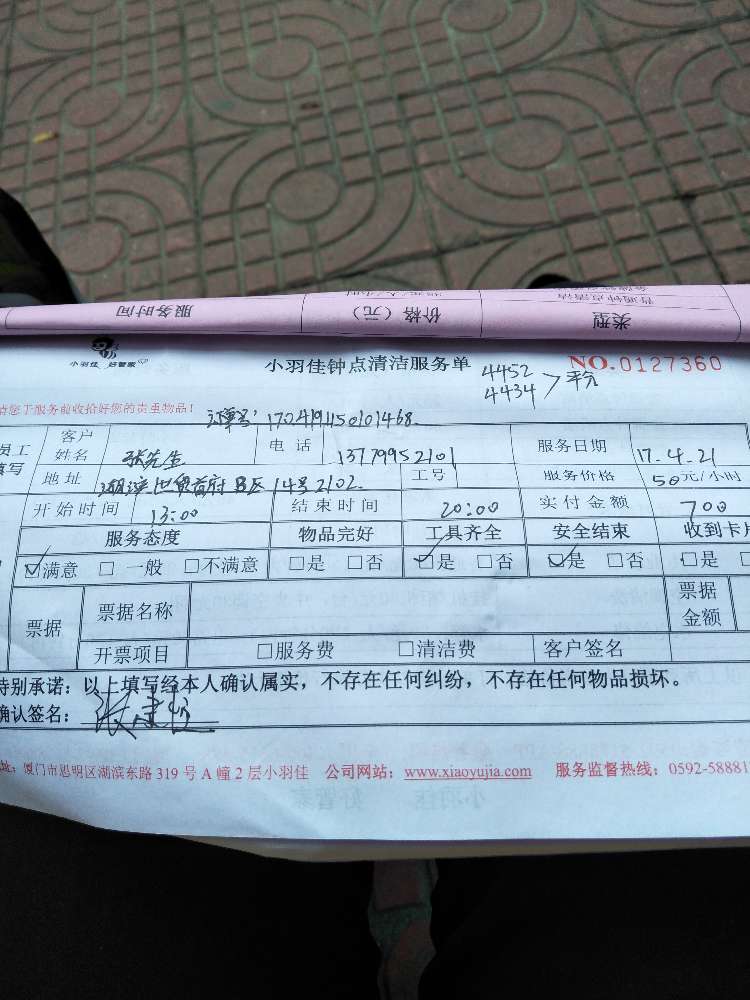 服务时间 价格（元） 类型
普通钟点清洁
小羽佳 好管家
小羽佳钟点清洁服务单
NO.0127360
4452
4434 > 平分
请您于服务前收拾好您的贵重物品！
订单号: 17041911450101468
员工填写
客户姓名 张先生 电话 13779952101 服务日期 17.4.21
地址 湖滨世贸首府B区14号2102 工号 服务价格 50元/小时
开始时间 13:00 结束时间 20:00 实付金额 700
服务态度 物品完好 工具齐全 安全结束 收到卡片
☑满意 □ 一般 □不满意 □是 □否 ☑是 □否 ☑是 □否 □是
票据 票据名称 票据金额
开票项目 □服务费 □清洁费 客户签名
特别承诺：以上填写经本人确认属实，不存在任何纠纷，不存在任何物品损坏。
确认签名：
地址：厦门市思明区湖滨东路 319 号 A 幢 2 层小羽佳 公司网站：www.xiaoyujia.com 服务监督热线：0592-58881